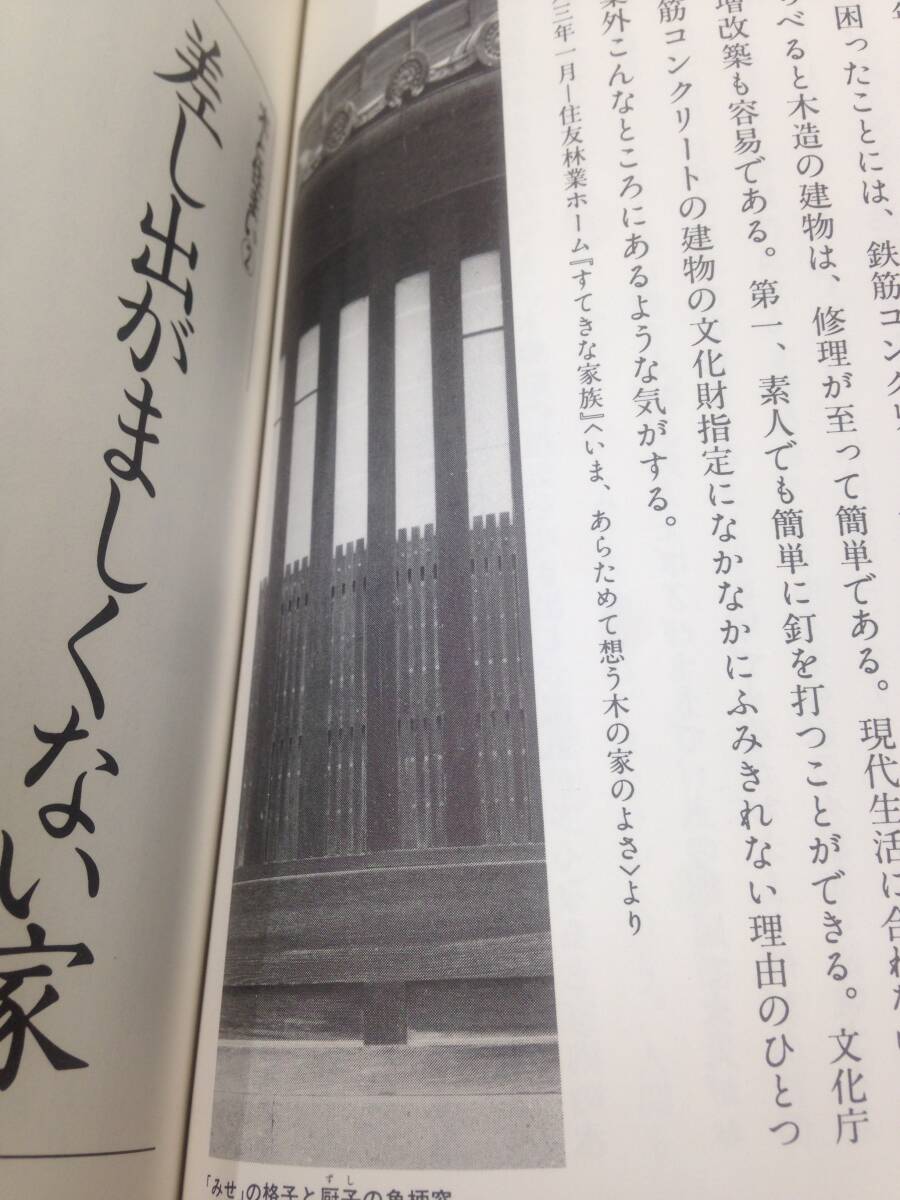 困ったことには、鉄筋コンクリ
べると木造の建物は、修理が至って簡単である。現代生活に合わ
増改築も容易である。第一、素人でも簡単に釘を打つことができる。文化庁
筋コンクリートの建物の文化財指定になかなかにふみきれない理由のひとつ
案外こんなところにあるような気がする。
三年一月—住友林業ホーム『すてきな家族』〈いま、あらためて想う木の家のよさ〉より
「みせ」の格子と厨子の
差し出がましくない家